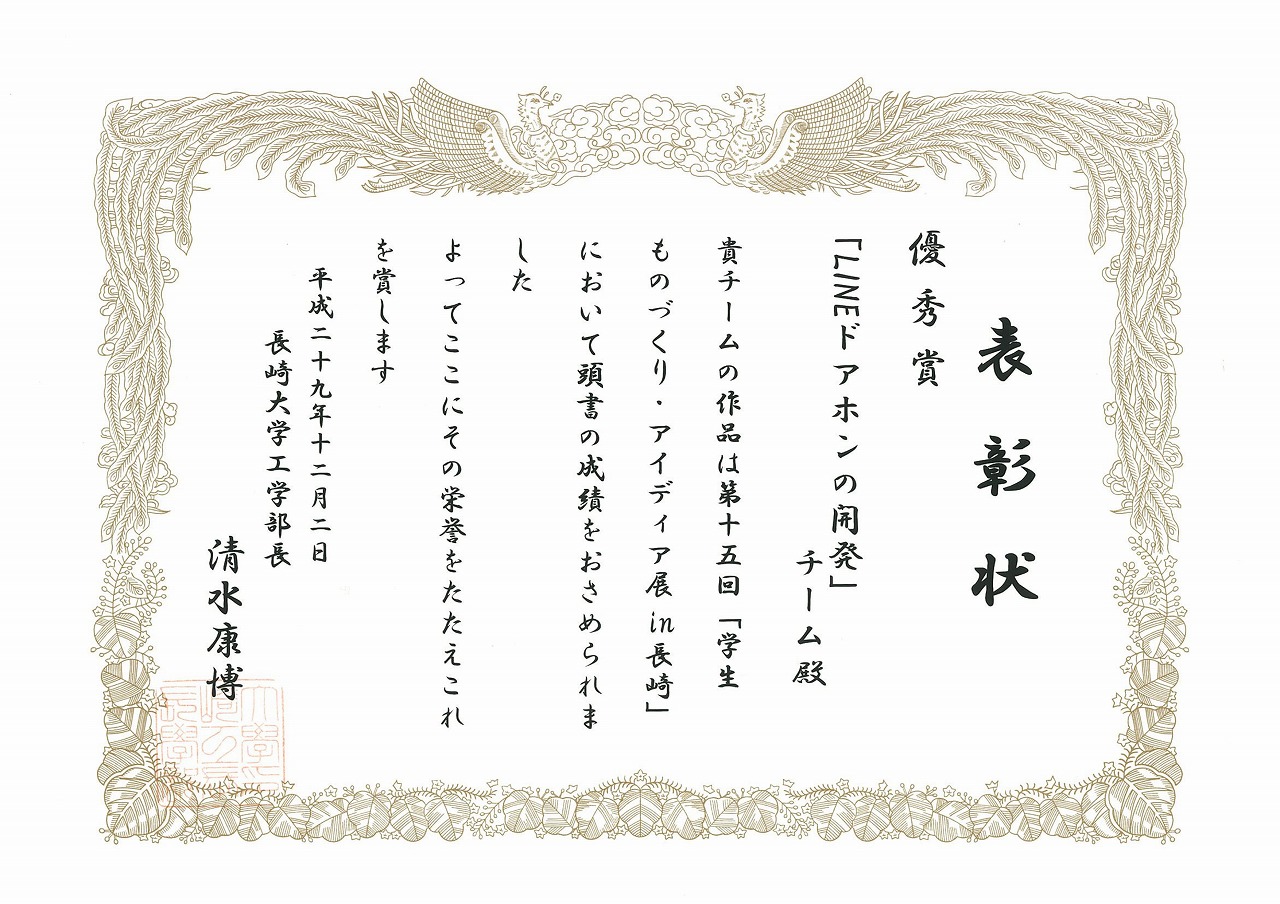 表彰状
優秀賞
「LINEドアホンの開発」
チーム殿
貴チームの作品は第十五回「学生
ものづくり・アイディア展in長崎」
において頭書の成績をおさめられま
した
よってここにその栄誉をたたえこれ
を賞します
平成二十九年十二月二日
長崎大学工学部長
清水康博